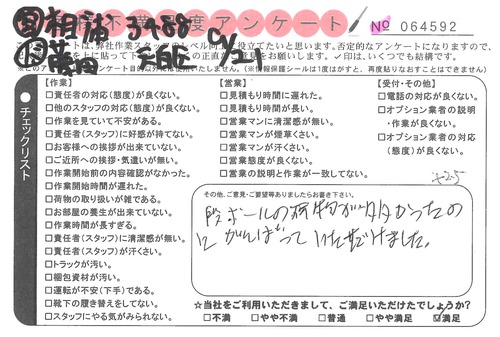 不満度アンケート
No 064592
相浦 3488
6/21
アンケートは、弊社作業スタッフのレベル向上に役立てたいと思います。否定的なアンケートになりますので、
【作業】
□責任者の対応(態度)が良くない。
□他のスタッフの対応(態度)が良くない。
□作業を見ていて不安がある。
□責任者(スタッフ)に好感が持てない。
□お客様への挨拶が出来ていない。
□ご近所への挨拶・気遣いが無い。
□作業開始前の内容確認がなかった。
□作業開始時間が遅れた。
□荷物の取り扱いが雑である。
□お部屋の養生が出来ていない。
□作業時間が長すぎる。
□責任者(スタッフ)に清潔感が無い。
□責任者(スタッフ)が汗くさい。
□トラックが汚い。
□梱包資材が汚い。
□運転が不安(下手)である。
□靴下の履き替えをしてない。
□スタッフにやる気がみられない。
【営業】
□見積もりに遅れた。
□見積もり時間が長い。
□営業マンに清潔感が無い。
□営業マンが煙草くさい。
□営業マンが汗くさい。
□営業態度が良くない。
□営業の説明と作業が一致してない。
【受付・その他】
□電話の対応が良くない。
□オプション業者の説明
・作業が良くない。
□オプション業者の対応
(態度)が良くない。
●チェックリスト
その他、ご意見・ご要望等ありましたらお書き下さい。
段ボールの荷物が多かったの
に がんばって いただけました。
☆当社をご利用いただきまして、ご満足いただけたでしょうか?
□不満 □やや不満 □普通 □やや満足 ☑満足